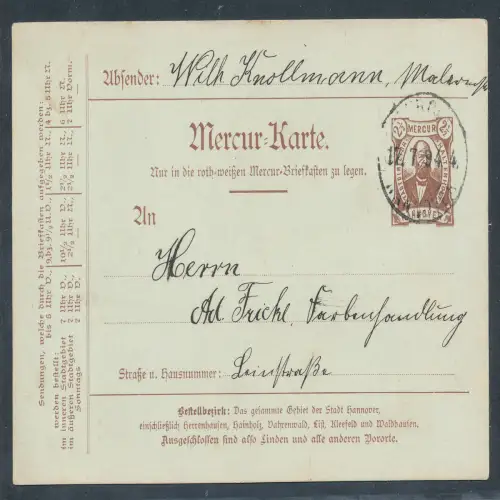 Absender: Wilh Knollmann, Malermstr
Mercur-Karte.
Nur in die roth-weißen Mercur-Briefkasten zu legen.
An
Herrn
Ad. Frickl, Farbenhandlung
Straße u. Hausnummer: Leinstraße
Bestellbezirk: Das gesamte Gebiet der Stadt Hannover,
einschließlich Herrenhausen, Hainholz, Vahrenwald, List, Kleefeld und Waldhausen.
Ausgeschlossen sind also Linden und alle anderen Vororte.
2½ MERCUR 2½
HANNOVER
12.1.94.4.
Sendungen, welche durch die Briefkasten aufgegeben werden:
bis 6 Uhr V., 9,bz. 9½ U.V., 1½ Uhr N., 4 bz. 5 Uhr N.
werden bestellt:
im inneren Stadtgebiet 7 Uhr V., 10½ Uhr V., 2½ Uhr N., 6 Uhr N.
im äußeren Stadtgebiet 7 Uhr V., 2½ Uhr N., 2½ Uhr N., 7 Uhr Vorm.
Sonntags 7 Uhr V.